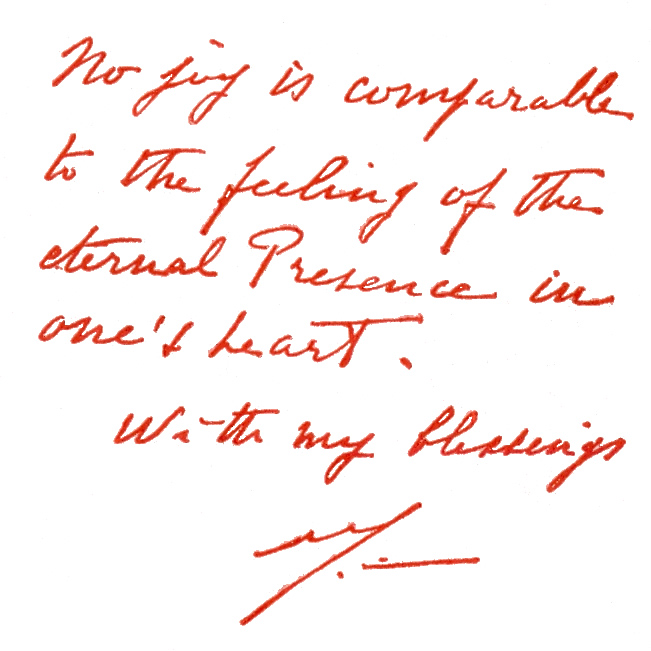 No joy is comparable
to the feeling of the
eternal Presence in
one's heart.
With my blessings